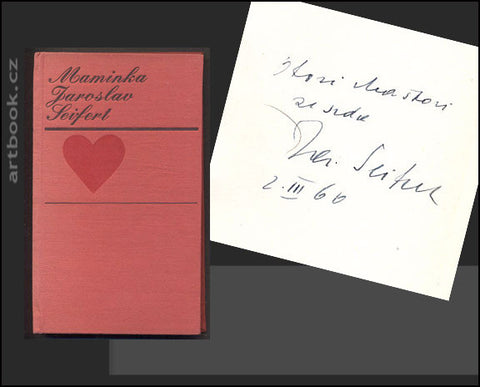 artbook.cz
Maminka
Jaroslav
Seifert
ze srdce
Jar. Seifert
2. III 60